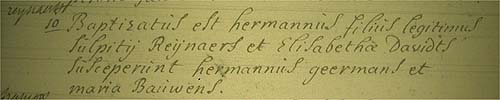 reijnaers
10 Baptizatus est hermannus filius legitimus
sulpitij Reijnaers et Elisabetha Davidts
susceperunt hermannus geermans et
maria Bauwens.